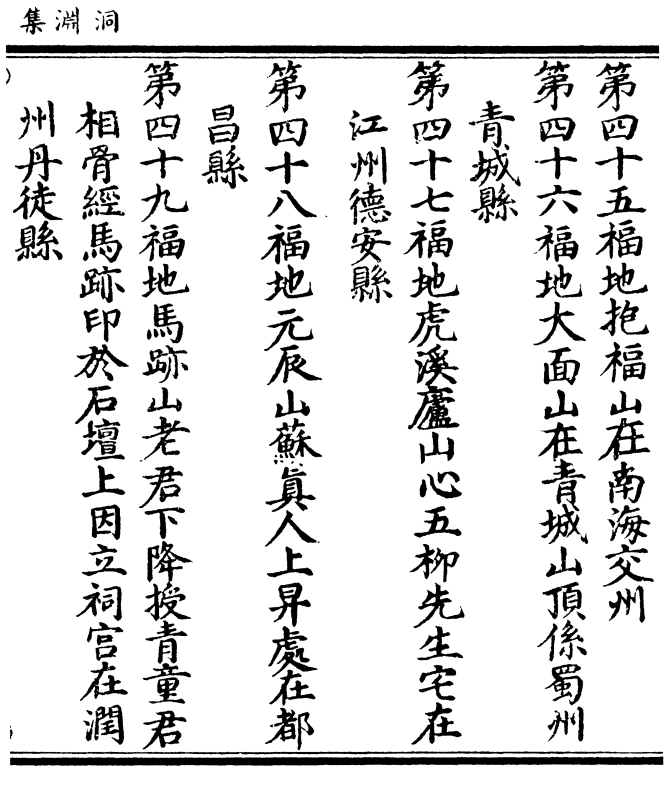 洞淵集
第四十五福地抱福山在南海交州
第四十六福地大面山在青城山頂係蜀州
青城縣
第四十七福地虎溪廬山心五柳先生宅在
江州德安縣
第四十八福地元辰山蘇真人上昇處在都
昌縣
第四十九福地馬跡山老君下降授青童君
相骨經馬跡印於石壇上因立祠宮在潤
州丹徒縣